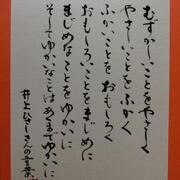 むずかしいことをやさしく
やさしいことをふかく
ふかいことをおもしろく
おもしろいことをまじめに
まじめなことをゆかいに
そしてゆかいなことはあくまでゆかいに
井上ひさしさんの言葉